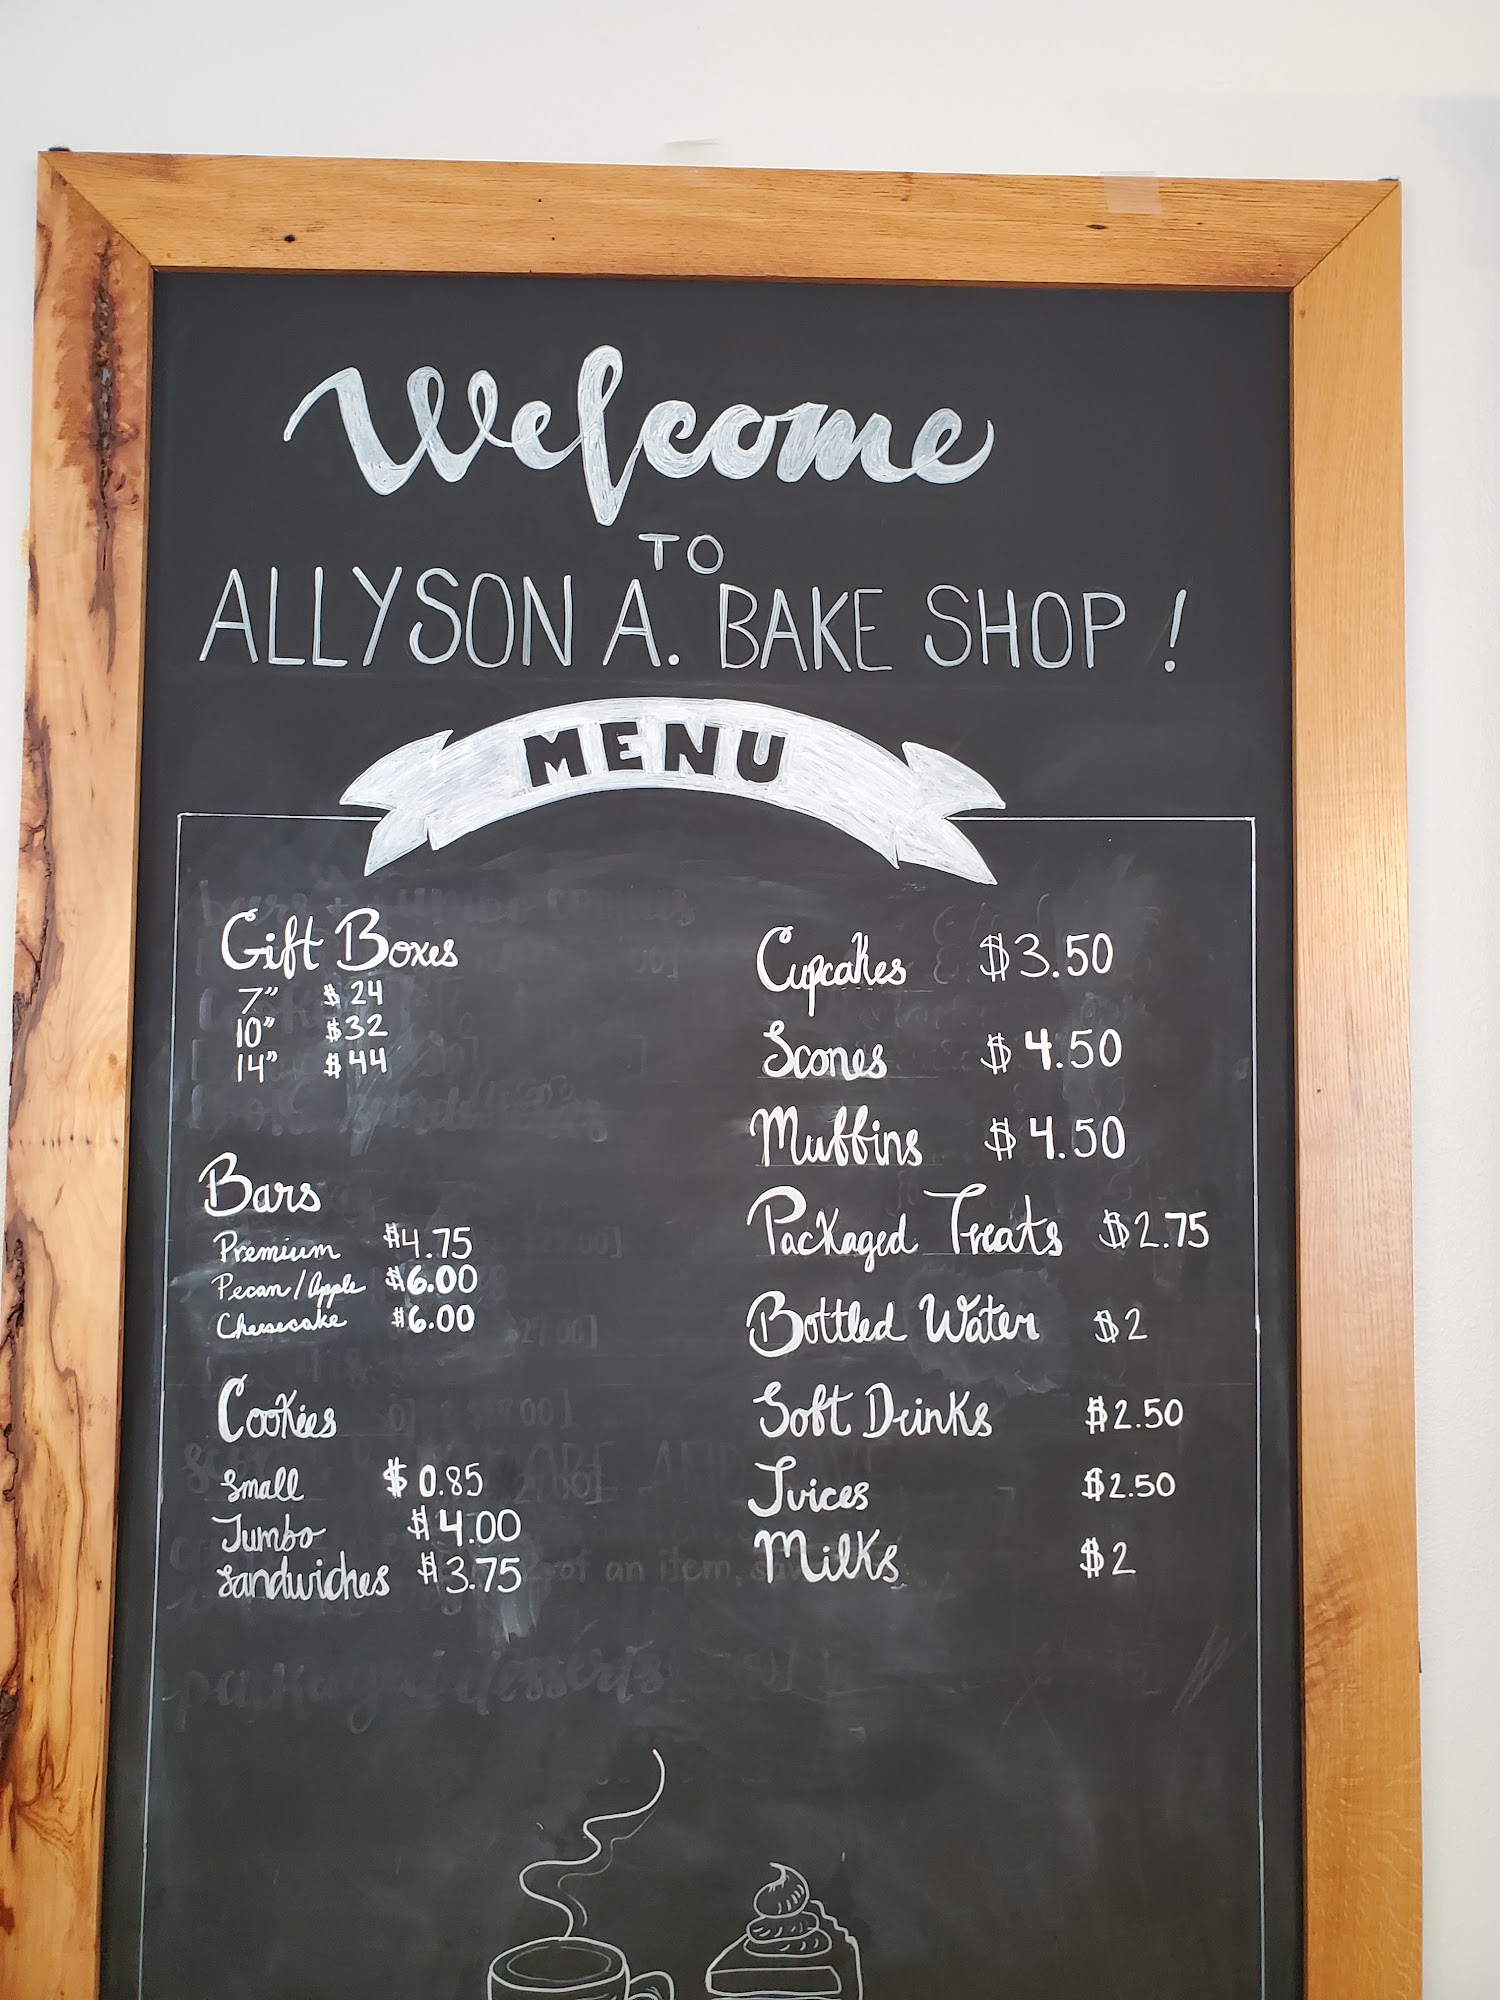 Welcome
TO
ALLYSON A. BAKE SHOP!
MENU
Gift Boxes
7" $24
10" $32
14" $44
Bars
Premium $4.75
Pecan/Apple $6.00
Cheesecake $6.00
Cookies
Small $0.85
Jumbo $4.00
Sandwiches $3.75
Cupcakes $3.50
Scones $4.50
Muffins $4.50
Packaged Treats $2.75
Bottled Water $2
Soft Drinks $2.50
Juices $2.50
Milks $2
of an item,
packaged desserts